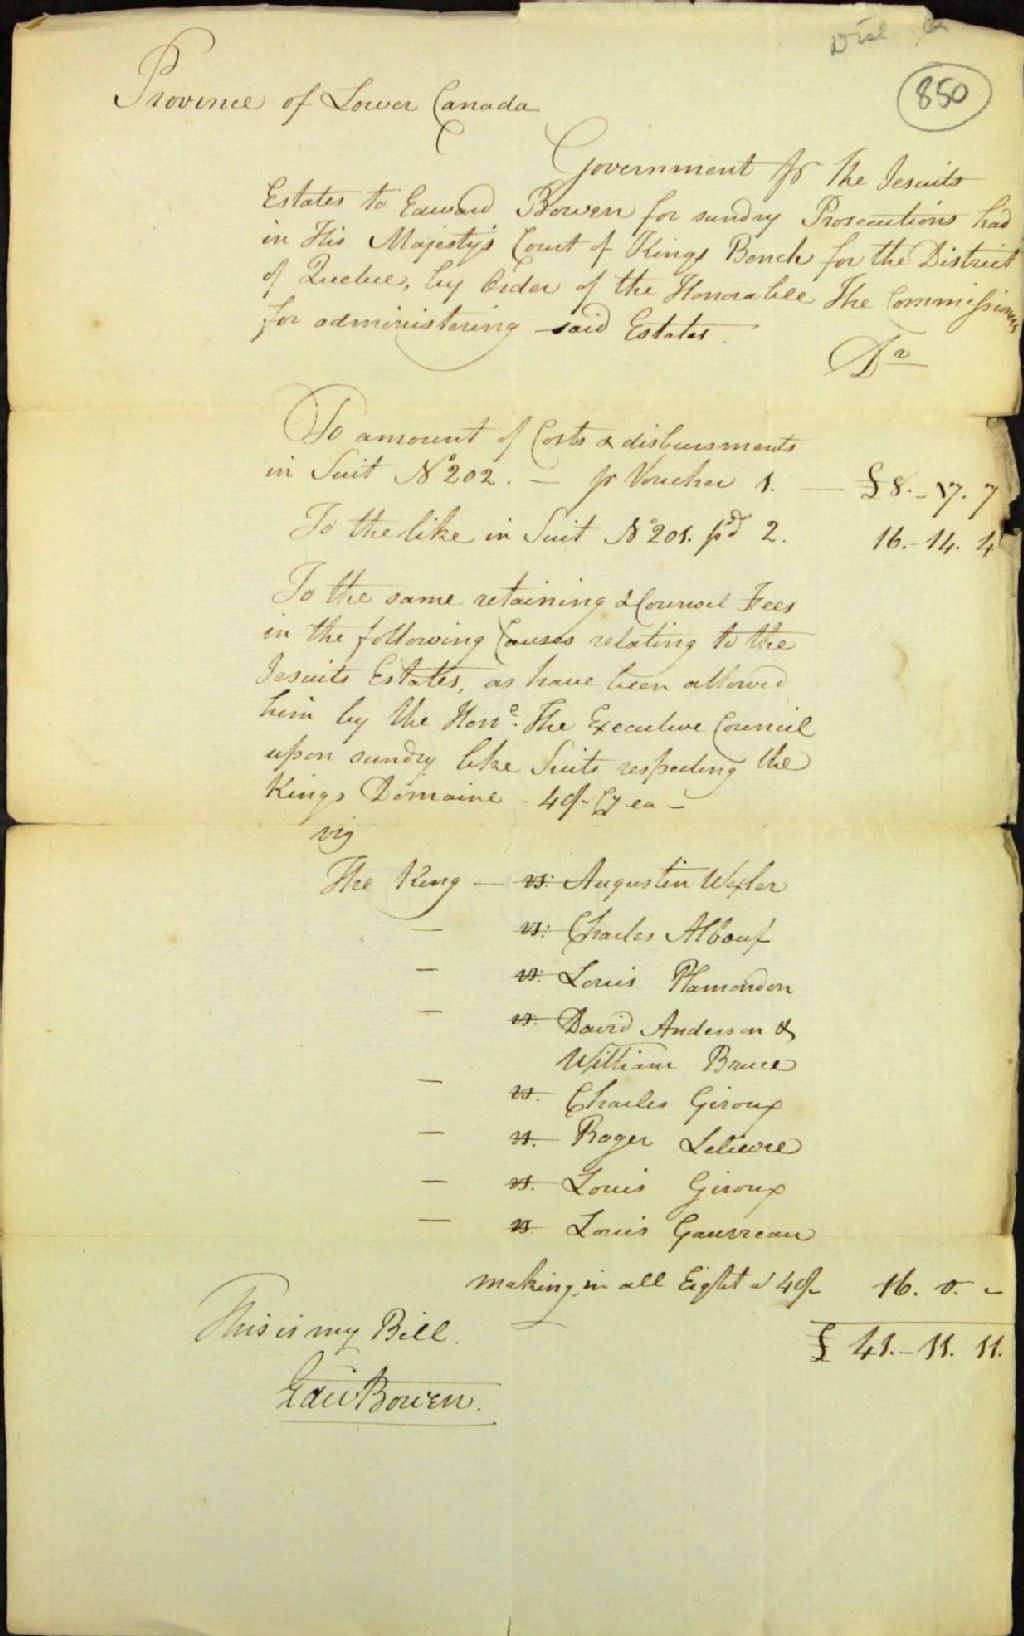 Dist Q
850
Province of Lower Canada
Government pr the Jesuits
Estates to Edward Bowen for sundry Prosecutions had
in His Majesty's Court of Kings Bench for the District
of Quebec, by Order of the Honorable The Commissioners
for administering said Estates.
Dr
To amount of Costs & disbursments
in Suit No 202. — pr Voucher 1. — £8.-17.7
To the like in Suit No 201. pd 2. 16.-14.4
To the same retaining & Council Fees
in the following Causes relating to the
Jesuits Estates, as have been allowed
him by the Hone. The Executive Council
upon sundry like Suits respecting the
Kings Domaine 40/- Cy ea —
viz
The King — vs: Augustin Wexler
— vs: Charles Albouf
— vs: Louis Plamondon
— vs. David Anderson &
William Bruce
— vs. Charles Giroux
— vs. Roger Lelievre
— vs. Louis Giroux
— vs Louis Gauvreau
making in all Eight a 40/- 16. 0. -
This is my Bill. £ 41.-11.11.
Edw Bowen.